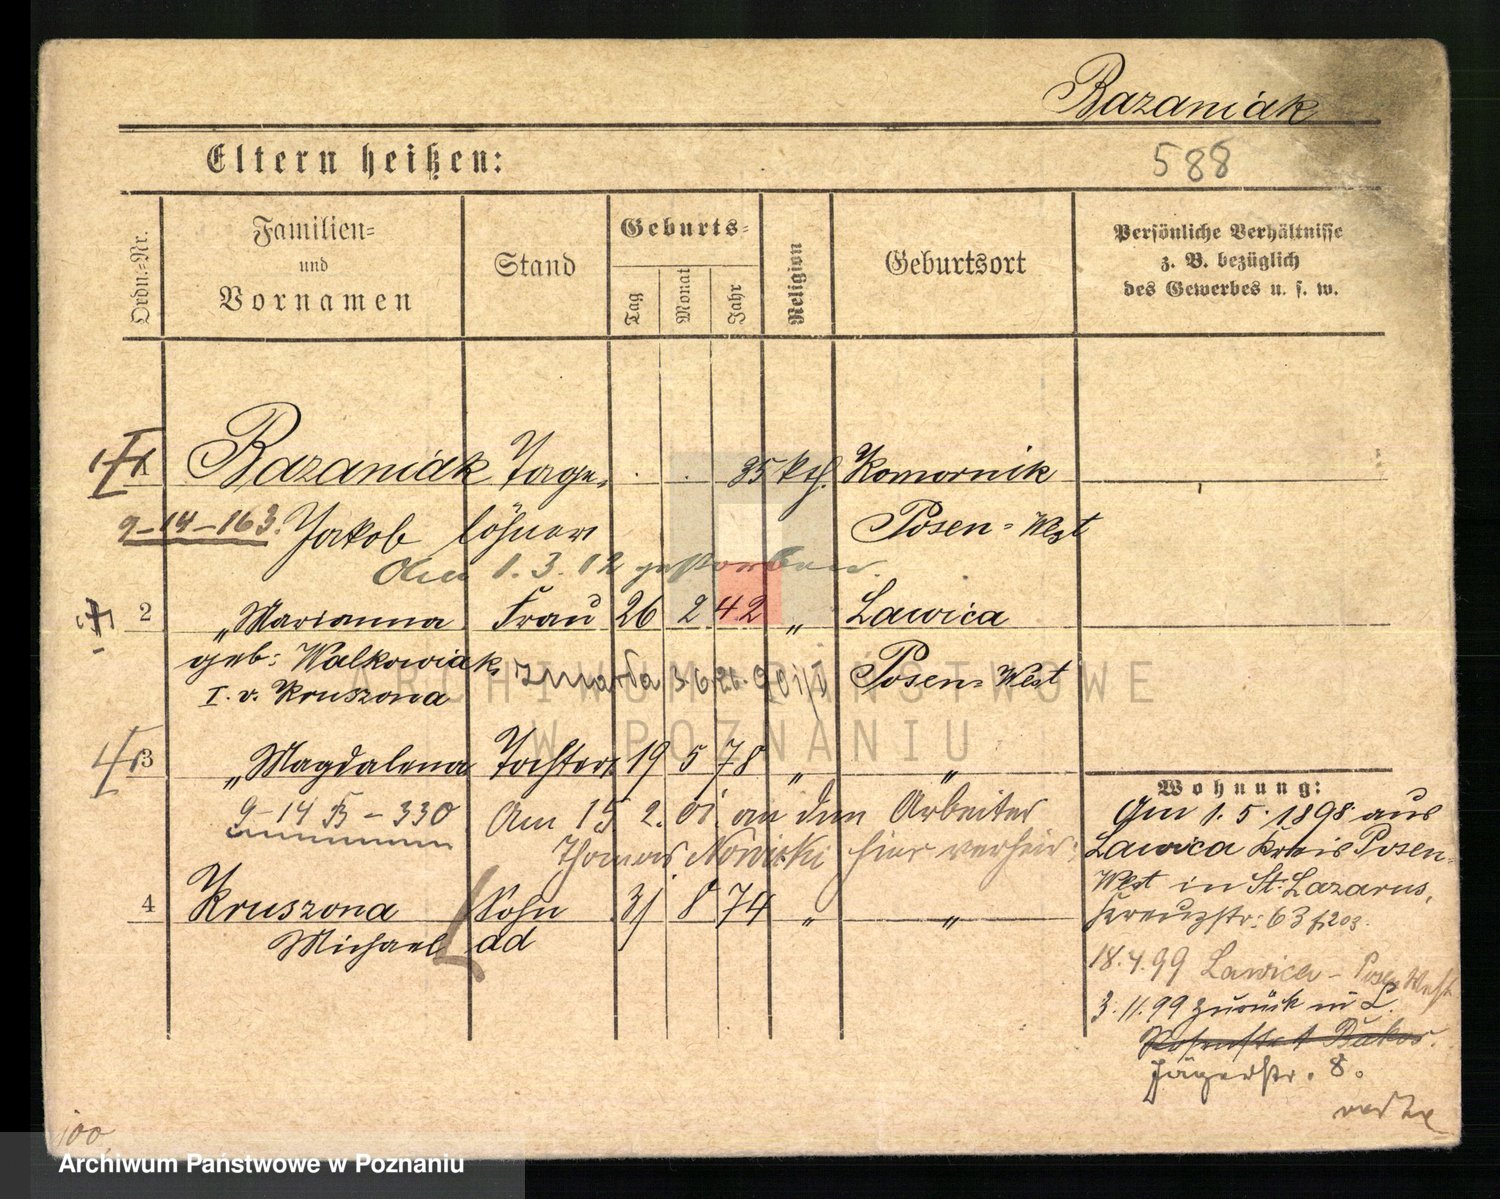 Bazaniak
Eltern heißen:
588
Ordn.-Nr.
Familien-
und
Vornamen
Stand
Geburts-
Tag
Monat
Jahr
Religion
Geburtsort
Persönliche Verhältnisse
z. B. bezüglich
des Gewerbes u. s. w.
1 Bazaniak Tage- . . 35 kth. Komornik
9-14-163. Jakob löhner Posen-West
Am 1.3.12 gestorben.
2 „ Marianna Frau 26 2 42 „ Lawica
geb: Walkowiak zmarła 3.6.26. Posen-West
I. v. Kruszona
3 „ Magdalena Tochter 19 5 78 „ „
9-14 B-330 Am 15 2. 01. an den Arbeiter
Thomas Nowicki hier verheir.
4 Kruszona Sohn 31 8 74 „ „
Michael ad
Wohnung:
Am 1.5.1898 aus
Lawica Kreis Posen-
West in St. Lazarus,
Kreuzstr. 63
18.4.99 Lawica - Posen West
3.11.99 zurück in L.
Jägerstr. 8.
100
ARCHIWUM PAŃSTWOWE
W POZNANIU
Archiwum Państwowe w Poznaniu